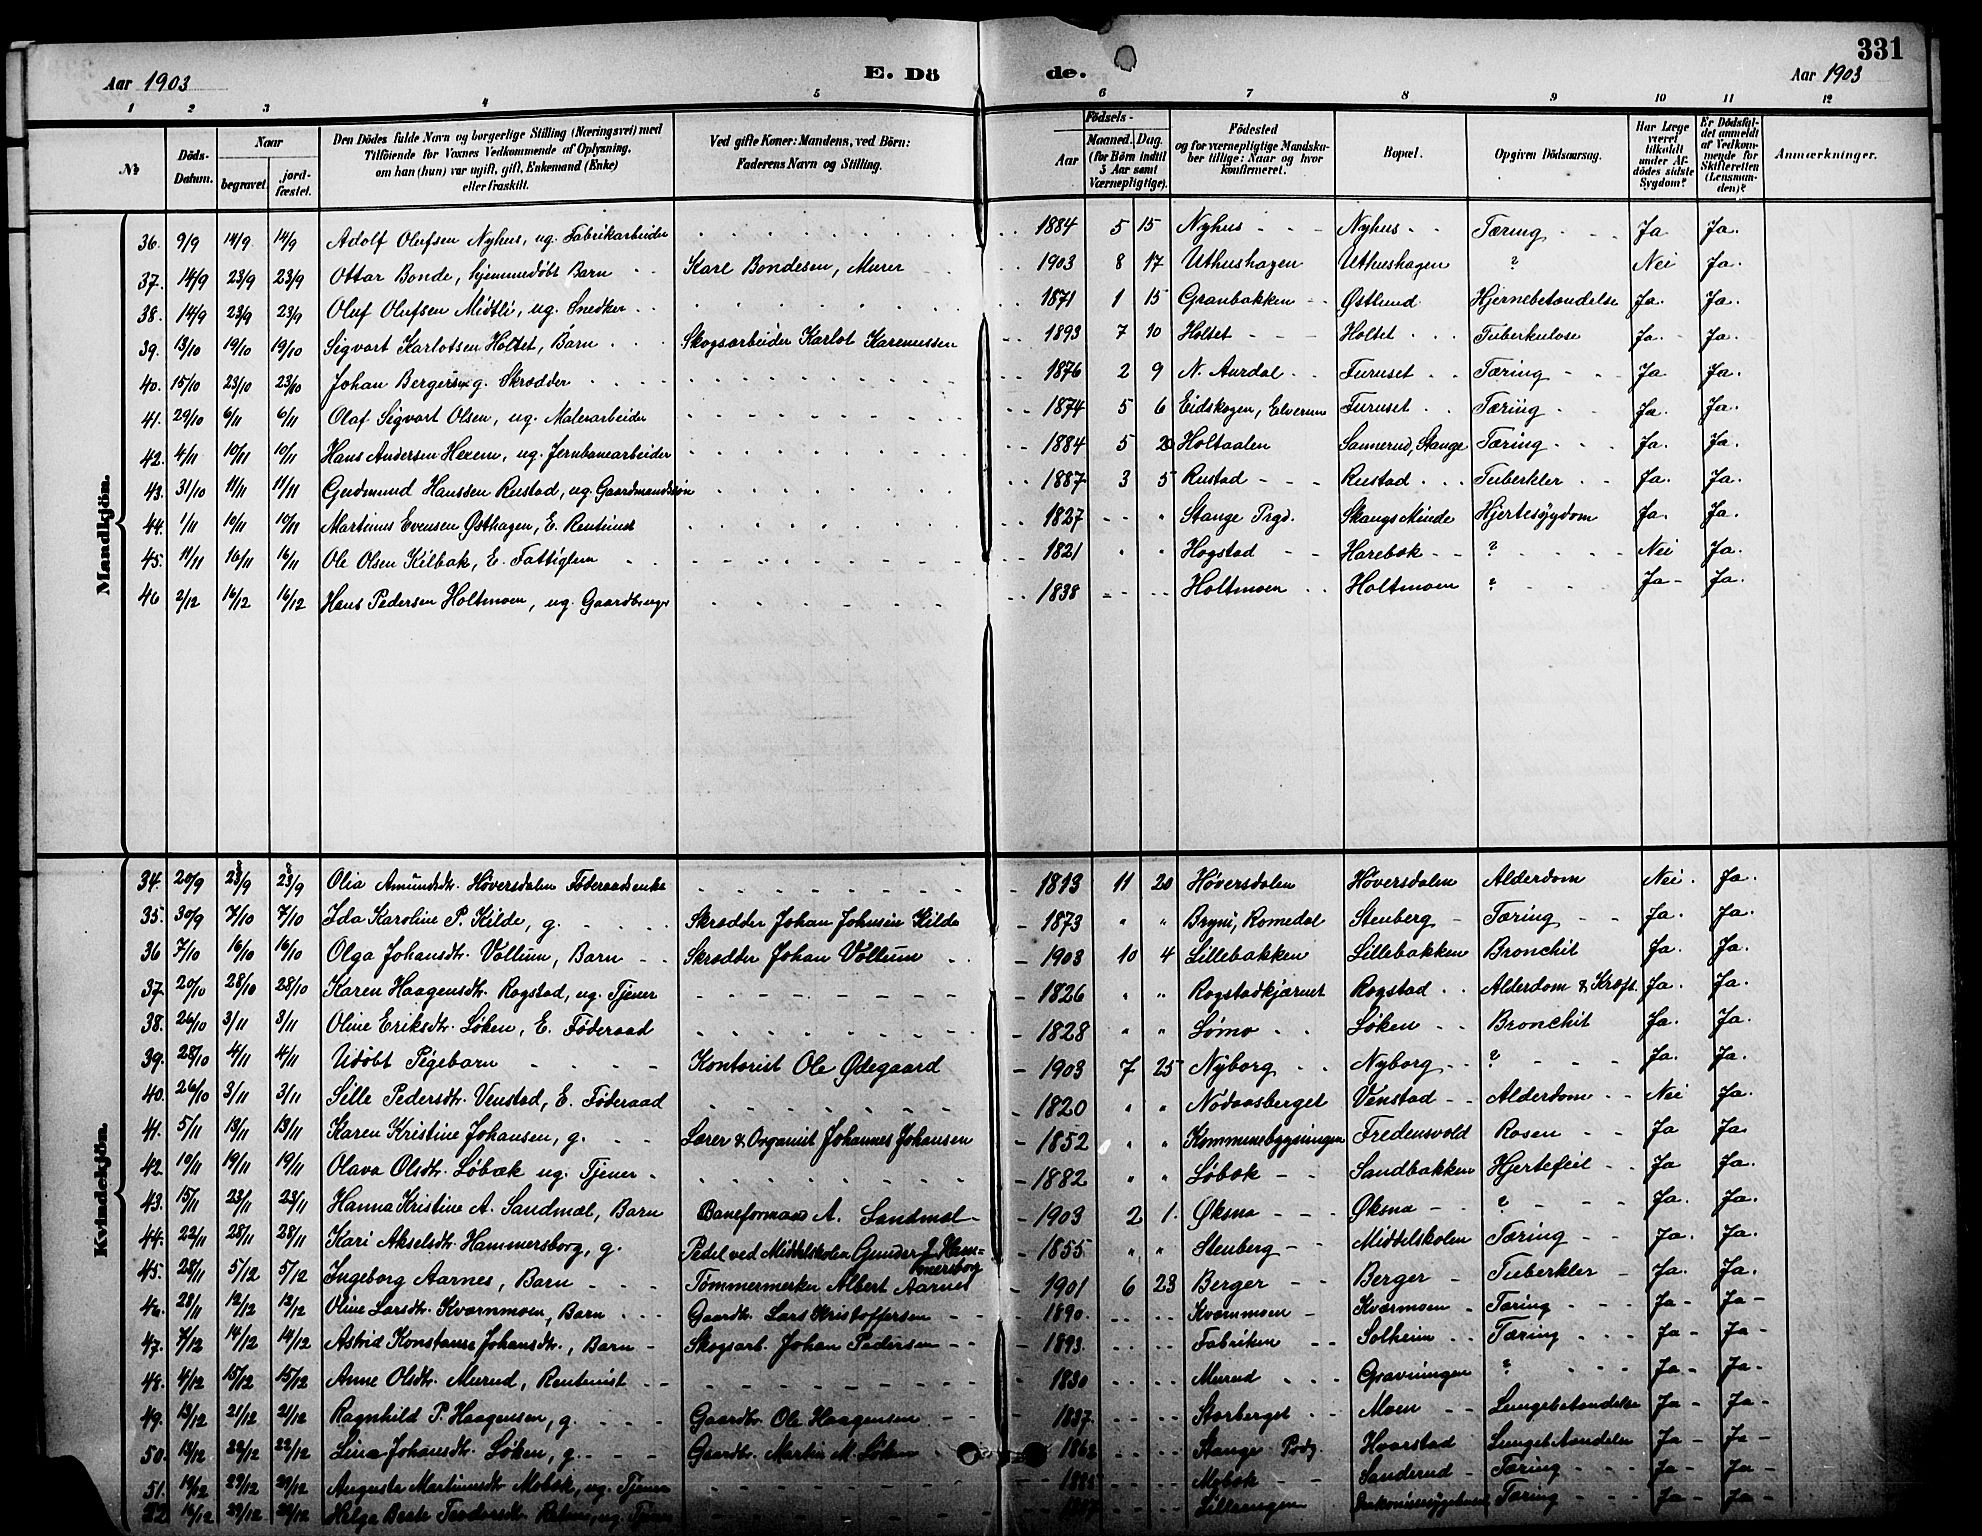 331
Aar 1903 E. Dö de. Aar 1903
1 2 3 4 5 6 7 8 9 10 11 12
№
Döds-Datum.
Naar
begravet.
jord-fæstet.
Den Dödes fulde Navn og borgerlige Stilling (Næringsvei) med
Tilföiende for Voxnes Vedkommende af Oplysning,
om han (hun) var ugift, gift, Enkemand (Enke)
eller fraskilt.
Ved gifte Koner: Mandens, ved Börn:
Faderens Navn og Stilling.
Födsels-
Aar
Maaned. Dag.
(for Börn indtil
5 Aar samt
Værnepligtige).
Födested
og for værnepligtige Mandska-
ber tillige: Naar og hvor
konfirmeret.
Bopæl.
Opgiven Dödsaarsag.
Har Læge
været
tilkaldt
under Af-
dödes sidste
Sygdom?
Er Dödsfal-
det anmeldt
af Vedkom-
mende for
Skifteretten
(Lensman-
den)?
Anmærkninger.
Mandkjön.
36. 9/9 14/9 14/9 Adolf Olufsen Nyhus, ug. Fabrikarbeider 1884 5 15 Nyhus Nyhus Tæring Ja Ja.
37. 14/9 23/9 23/9 Ottar Bonde, hjemmedøbt Barn Karl Bondesen, Murer 1903 8 17 Uthushagen Uthushagen ? Nei Ja.
38. 14/9 23/9 23/9 Oluf Olufsen Midtli, ug. Snedker 1871 1 15 Granbakken Østlund Hjernebetændelse Ja. Ja.
39. 13/10 19/10 19/10 Sigvart Karlotsen Holtet, Barn Skogsarbeider Karlot Karenussen 1893 7 10 Holtet Holtet Tuberkulose Ja. Ja.
40. 15/10 23/10 23/10 Johan Bergersen ug. Skrædder 1876 2 9 N. Aurdal Furuset Tæring Ja Ja.
41. 29/10 6/11 6/11 Olaf Sigvart Olsen, ug. Malerarbeider 1874 5 6 Eidskogen, Elverum Furuset Tæring Ja. Ja.
42. 4/11 10/11 10/11 Hans Andersen Hexem, ug. Jernbanearbeider 1884 5 20 Holtaalen Sannerud, Stange Tæring Ja. Ja.
43. 31/10 11/11 11/11 Gudmund Hanssen Rustad, ug. Gaardmandssøn 1887 3 5 Rustad Rustad Tuberkler Ja. Ja.
44. 1/11 10/11 10/11 Martinus Evensen Østhagen, E. Rentenist 1827 " Stange Prgd. Skaugs Minde Hjertesygdom Ja. Ja.
45. 11/11 16/11 16/11 Ole Olsen Kilbak, E. Fattiglem 1821 " " Hogstad Harebæk ? Nei Ja.
46 2/12 16/12 16/12 Hans Pedersen Holtmoen, ug. Gaardbruger 1838 Holtmoen Holtmoen ? Ja Ja.
Kvindekjön.
34. 20/9 28/9 28/9 Olia Amundsdtr. Høversdalen Føderaadsenke 1813 11 20 Høversdalen Høversdalen Alderdom Nei. Ja.
35. 30/9 7/10 7/10 Ida Karoline P. Kilde, g. Skrædder Johan Johnsen Kilde 1873 " " Bryni, Romedal Stenberg Tæring Ja. Ja.
36 7/10 16/10 16/10 Olga Johansdtr. Vollum, Barn Skrædder Johan Vollum 1903 10 4 Lillebakken Lillebakken Bronchit Ja. Ja.
37. 20/10 28/10 28/10 Karen Haagensdtr. Rogstad, ug. Tjener 1826 " " Rogstadkjærnet Rogstad Alderdom & Kræft. Ja. Ja.
38. 26/10 3/11 3/11 Oline Eriksdtr. Løken, E. Føderaad 1828 " " Lømo Løken Bronchit Ja. Ja.
39. 28/10 4/11 4/11 Udøbt Pigebarn Kontorist Ole Ødegaard 1903 7 25 Nyborg Nyborg ? Ja. Ja.
40. 26/10 3/11 3/11 Sille Pedersdtr. Venstad, E. Føderaad 1820 " " Nodaasberget Venstad Alderdom Nei Ja.
41. 5/11 13/11 13/11 Karen Kristine Johansen, g. Lærer & Organist Johannes Johansen 1852 " " Kommunebygningen Fredensvold Rosen Ja Ja.
42. 10/11 19/11 19/11 Olava Olsdtr. Løbæk ug. Tjener 1882 " " Løbæk Sandbakken Hjertefeil Ja Ja.
43. 15/11 23/11 23/11 Hanna Kristine A. Sandmæl, Barn Baneformand A. Sandmæl 1903 2 1. Øksna Øksna ? Ja. Ja.
44. 22/11 28/11 28/11 Kari Akselsdtr. Hammersborg, g. Pedel ved Middelskolen Gunder J. Ham-
mersborg 1855 " " Stenberg Middelskolen Tæring Ja. Ja.
45. 28/11 5/12 5/12 Ingeborg Aarnes, Barn Tømmermerker Albert Aarnes 1901 6 23 Berger Berger Tuberkler Ja. Ja.
46. 28/11 12/12 12/12 Oline Larsdtr. Kværnmoen, Barn Gaardbr. Lars Kristoffersen 1890. Kværnmoen Kværmoen Tæring Ja Ja
47. 7/12 14/12 14/12 Astrid Konstanse Johansdtr., Barn Skogsarb. Johan Pedersen 1893. Fabriken Solheim Tæring Ja Ja
48. 4/12 15/12 15/12 Anne Olsdtr. Murud, Rentenist 1830 Murud Gravningen ? Ja Ja
49. 13/12 21/12 21/12 Ragnhild P. Haagensen, g. Gaardbr. Ole Haagensen 1837. Storberget Moen Lungebetændelse Ja Ja
50. 13/12 22/12 22/12 Lina Johansdtr. Løken, g. Gaardbr. Martin M. Løken Stange Prdg Hvarstad Lungebetændelse Ja Ja
51. 19/12 29/12 29/12 Auguste Martinusdtr. Mobæk, ug. Tjener Mobæk Sanderud Tæring Ja Ja
52 29/12 29/12 Helga Teodorsdtr. ug. Tjener Lillerengen Tæring Ja Ja